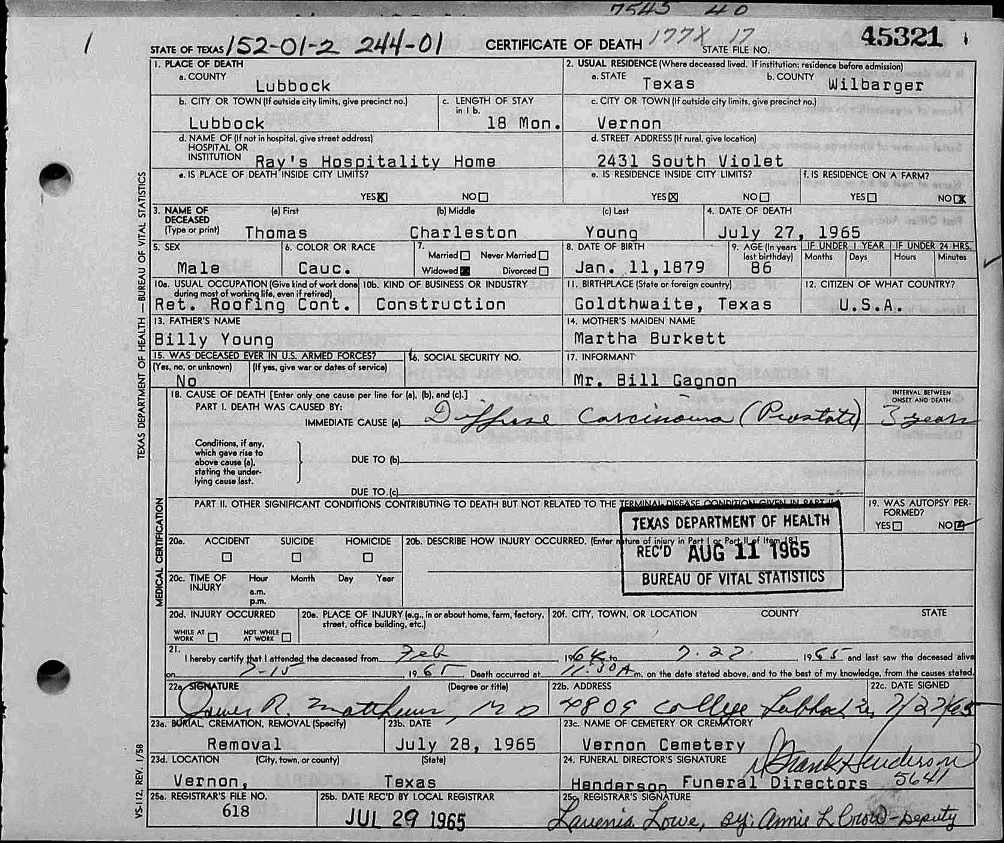 7545 40
1
STATE OF TEXAS 152-01-2 244-01 CERTIFICATE OF DEATH 177X 17 STATE FILE NO. 45321
1. PLACE OF DEATH
a. COUNTY
Lubbock
2. USUAL RESIDENCE (Where deceased lived. If institution: residence before admission)
a. STATE b. COUNTY
Texas Wilbarger
b. CITY OR TOWN (If outside city limits, give precinct no.)
Lubbock
c. LENGTH OF STAY in 1 b.
18 Mon.
c. CITY OR TOWN (If outside city limits, give precinct no.)
Vernon
d. NAME OF (If not in hospital, give street address)
HOSPITAL OR
INSTITUTION Ray's Hospitality Home
d. STREET ADDRESS (If rural, give location)
2431 South Violet
e. IS PLACE OF DEATH INSIDE CITY LIMITS?
YES X NO
e. IS RESIDENCE INSIDE CITY LIMITS?
YES X NO
f. IS RESIDENCE ON A FARM?
YES NO X
3. NAME OF DECEASED (Type or print)
(a) First (b) Middle (c) Last
Thomas Charleston Young
4. DATE OF DEATH
July 27, 1965
5. SEX
Male
6. COLOR OR RACE
Cauc.
7.
Married Never Married
Widowed Divorced
8. DATE OF BIRTH
Jan. 11,1879
9. AGE (In years last birthday)
86
IF UNDER 1 YEAR IF UNDER 24 HRS.
Months Days Hours Minutes
10a. USUAL OCCUPATION (Give kind of work done during most of working life, even if retired)
Ret. Roofing Cont.
10b. KIND OF BUSINESS OR INDUSTRY
Construction
11. BIRTHPLACE (State or foreign country)
Goldthwaite, Texas
12. CITIZEN OF WHAT COUNTRY?
U.S.A.
13. FATHER'S NAME
Billy Young
14. MOTHER'S MAIDEN NAME
Martha Burkett
15. WAS DECEASED EVER IN U.S. ARMED FORCES?
(Yes, no, or unknown) (If yes, give war or dates of service)
No
16. SOCIAL SECURITY NO.
17. INFORMANT
Mr. Bill Gagnon
18. CAUSE OF DEATH [Enter only one cause per line for (a), (b), and (c).]
PART I. DEATH WAS CAUSED BY:
IMMEDIATE CAUSE (a) Diffuse Carcinoma (Prostate)
INTERVAL BETWEEN ONSET AND DEATH
3 years
Conditions, if any, which gave rise to above cause (a), stating the underlying cause last.
DUE TO (b)
DUE TO (c)
PART II. OTHER SIGNIFICANT CONDITIONS CONTRIBUTING TO DEATH BUT NOT RELATED TO THE TERMINAL DISEASE CONDITION GIVEN IN PART I(a)
19. WAS AUTOPSY PERFORMED?
YES NO
TEXAS DEPARTMENT OF HEALTH
REC'D AUG 11 1965
BUREAU OF VITAL STATISTICS
20a. ACCIDENT SUICIDE HOMICIDE
20b. DESCRIBE HOW INJURY OCCURRED. (Enter nature of injury in Part I or Part II of Item 18.)
20c. TIME OF INJURY Hour Month Day Year
a.m.
p.m.
20d. INJURY OCCURRED
WHILE AT WORK NOT WHILE AT WORK
20e. PLACE OF INJURY (e.g., in or about home, farm, factory, street, office building, etc.)
20f. CITY, TOWN, OR LOCATION COUNTY STATE
21.
I hereby certify that I attended the deceased from Feb 1964 to 7-27 1965 and last saw the deceased alive
on 7-15 1965 Death occurred at 11:30 A m. on the date stated above, and to the best of my knowledge, from the causes stated.
22a. SIGNATURE (Degree or title)
James R. Matthews, MD
22b. ADDRESS
4809 College Lubbock
22c. DATE SIGNED
7/27/65
23a. BURIAL, CREMATION, REMOVAL (Specify)
Removal
23b. DATE
July 28, 1965
23c. NAME OF CEMETERY OR CREMATORY
Vernon Cemetery
23d. LOCATION (City, town, or county) (State)
Vernon, Texas
24. FUNERAL DIRECTOR'S SIGNATURE
Frank Henderson
5641
Henderson Funeral Directors
25a. REGISTRAR'S FILE NO.
618
25b. DATE REC'D BY LOCAL REGISTRAR
JUL 29 1965
25c. REGISTRAR'S SIGNATURE
Lavenia Lowe, By: Annie L Crow-Deputy
TEXAS DEPARTMENT OF HEALTH — BUREAU OF VITAL STATISTICS
MEDICAL CERTIFICATION
VS-112, REV. 1/58